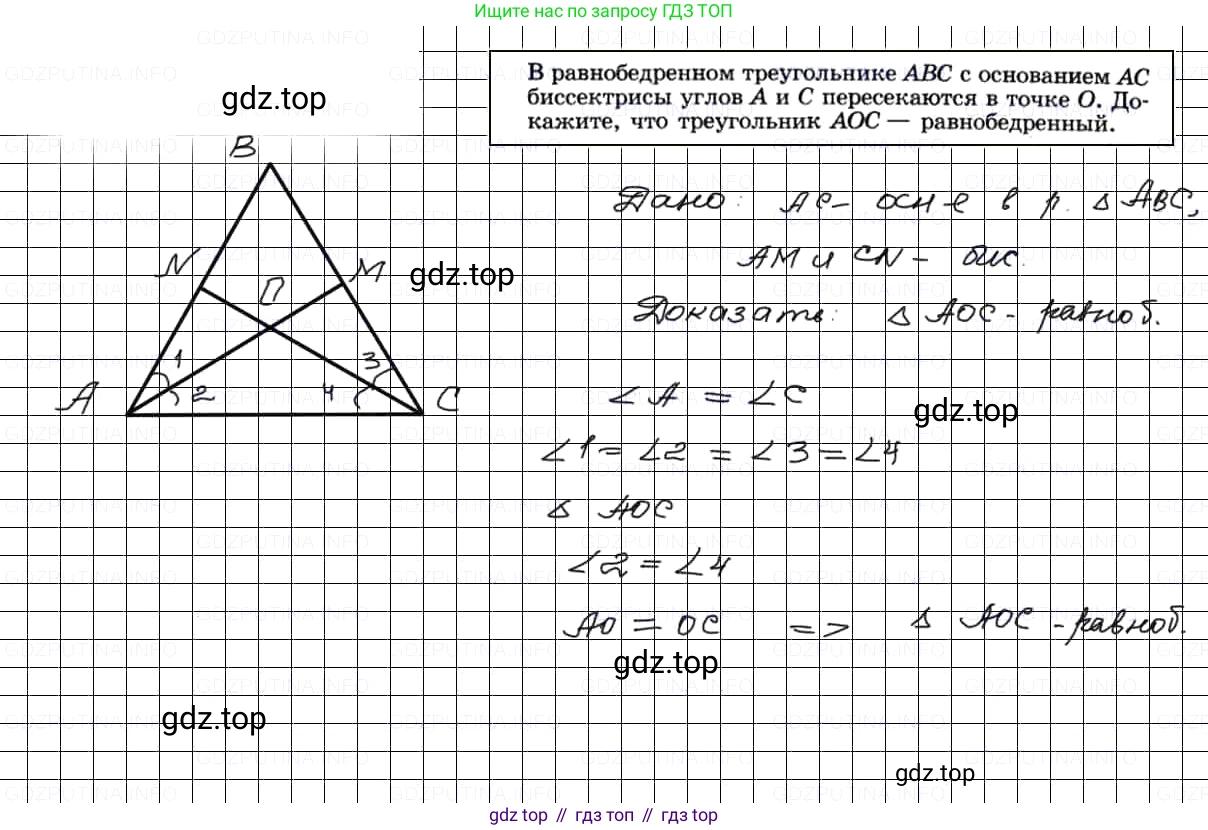 Ищите нас по запросу ГДЗ ТОП
В равнобедренном треугольнике ABC с основанием AC
биссектрисы углов A и C пересекаются в точке O. До-
кажите, что треугольник AOC — равнобедренный.
gdz.top
B
Дано: AC - осн-е в р. Δ ABC,
N
M
AM и CN - бис.
gdz.top
O
Доказать: Δ AOC - равноб.
1
3
A
2
4
C
∠A = ∠C
gdz.top
∠1 = ∠2 = ∠3 = ∠4
Δ AOC
∠2 = ∠4
AO = OC => Δ AOC - равноб.
gdz.top
gdz.top
gdz.top
gdz top // гдз топ // gdz top
GDZPUTINA.INFO